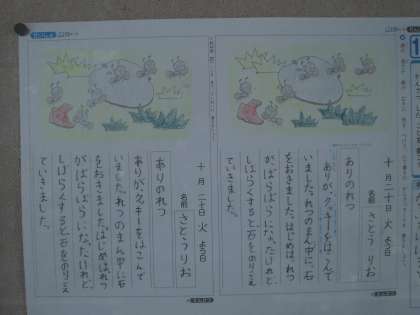 十月二十日 火よう日
名前 さとう りお
ありのれつ
ありが、クッキーをはこんで
いました。れつのまん中に、石
をおきました。はじめは、れつ
がばらばらになったけれど、
しばらくすると石をのりこえ
ていきました。
十月二十日 火よう日
名前 さとう りお
ありのれつ
ありが、クッキーをはこんで
いました。れつのまん中に石
をおきました。はじめはれつ
がばらばらになったけれど、
しばらくすると石をのりこえ
ていきました。